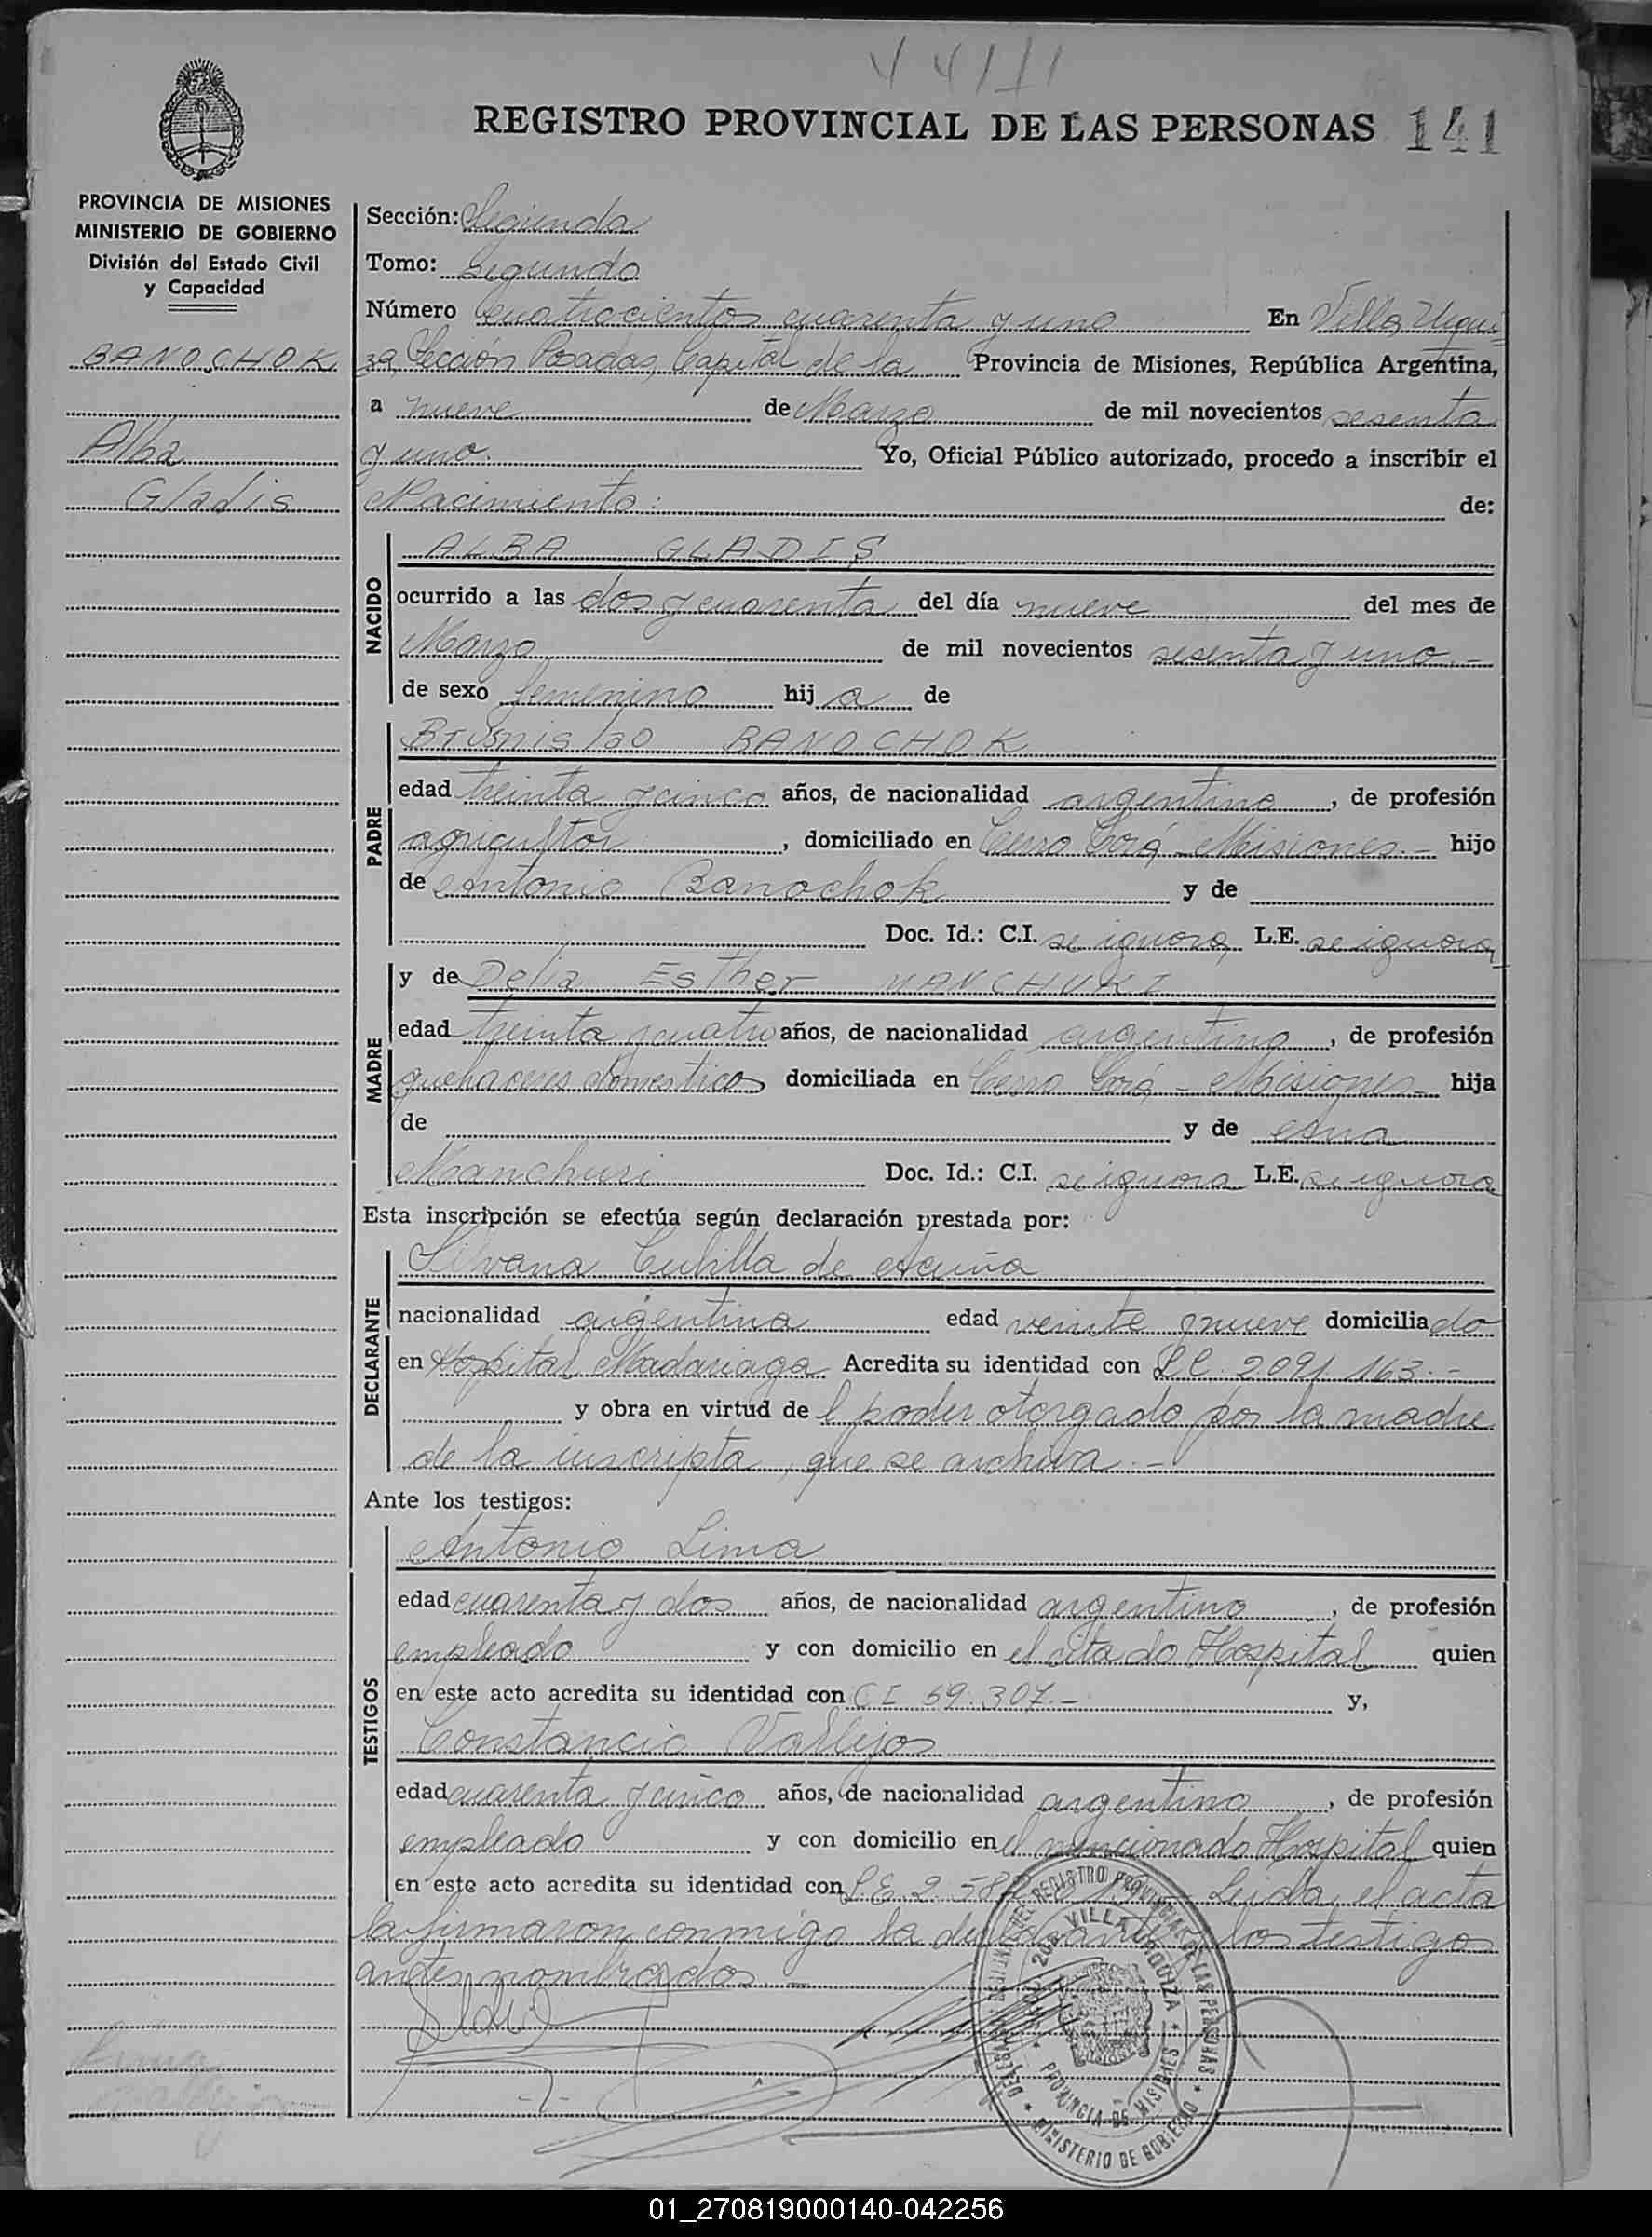 441
REGISTRO PROVINCIAL DE LAS PERSONAS 141
PROVINCIA DE MISIONES
MINISTERIO DE GOBIERNO
División del Estado Civil
y Capacidad
BANOCHOK
Alba
Gladis
Sección: Segunda
Tomo: Segundo
Número Cuatrocientos cuarenta y uno En Villa Urqui
za, Sección Posadas, Capital de la Provincia de Misiones, República Argentina,
a nueve de Marzo de mil novecientos sesenta
y uno. Yo, Oficial Público autorizado, procedo a inscribir el
Nacimiento: de:
NACIDO
ALBA GLADIS
ocurrido a las dos y cuarenta del día nueve del mes de
Marzo de mil novecientos sesenta y uno.-
de sexo femenino hija de
PADRE
Bronislao BANOCHOK
edad treinta y cinco años, de nacionalidad argentina, de profesión
agricultor, domiciliado en Cerro Corá - Misiones.- hijo
de Antonio Banochok y de
Doc. Id.: C.I. se ignora, L.E. se ignora
MADRE
y de Delia Esther
edad treinta y cuatro años, de nacionalidad argentina, de profesión
quehaceres domesticos domiciliada en Cerro Corá - Misiones - hija
de y de Ana
Manchuri Doc. Id.: C.I. se ignora L.E. se ignora
Esta inscripción se efectúa según declaración prestada por:
DECLARANTE
Silvana Cubilla de Acuña
nacionalidad argentina edad veinte y nueve domiciliado
en Hospital Madariaga Acredita su identidad con L C 2.091.163.-
y obra en virtud del poder otorgado por la madre
de la inscripta, que se archiva.-
Ante los testigos:
TESTIGOS
Antonio Lima
edad cuarenta y dos años, de nacionalidad argentino, de profesión
empleado y con domicilio en el citado Hospital quien
en este acto acredita su identidad con C I 59.307.- y,
Constancio Vallejos
edad cuarenta y cinco años, de nacionalidad argentino, de profesión
empleado y con domicilio en el mencionado Hospital quien
en este acto acredita su identidad con L.E. 2 Leida el acta
la firmaron conmigo la declarante y los testigos
antes nombrados.-
REGISTRO PROVINCIAL DE LAS PERSONAS
VILLA URQUIZA
PROVINCIA DE MISIONES
MINISTERIO DE GOBIERNO
Lima
Vallejos
01_270819000140-042256